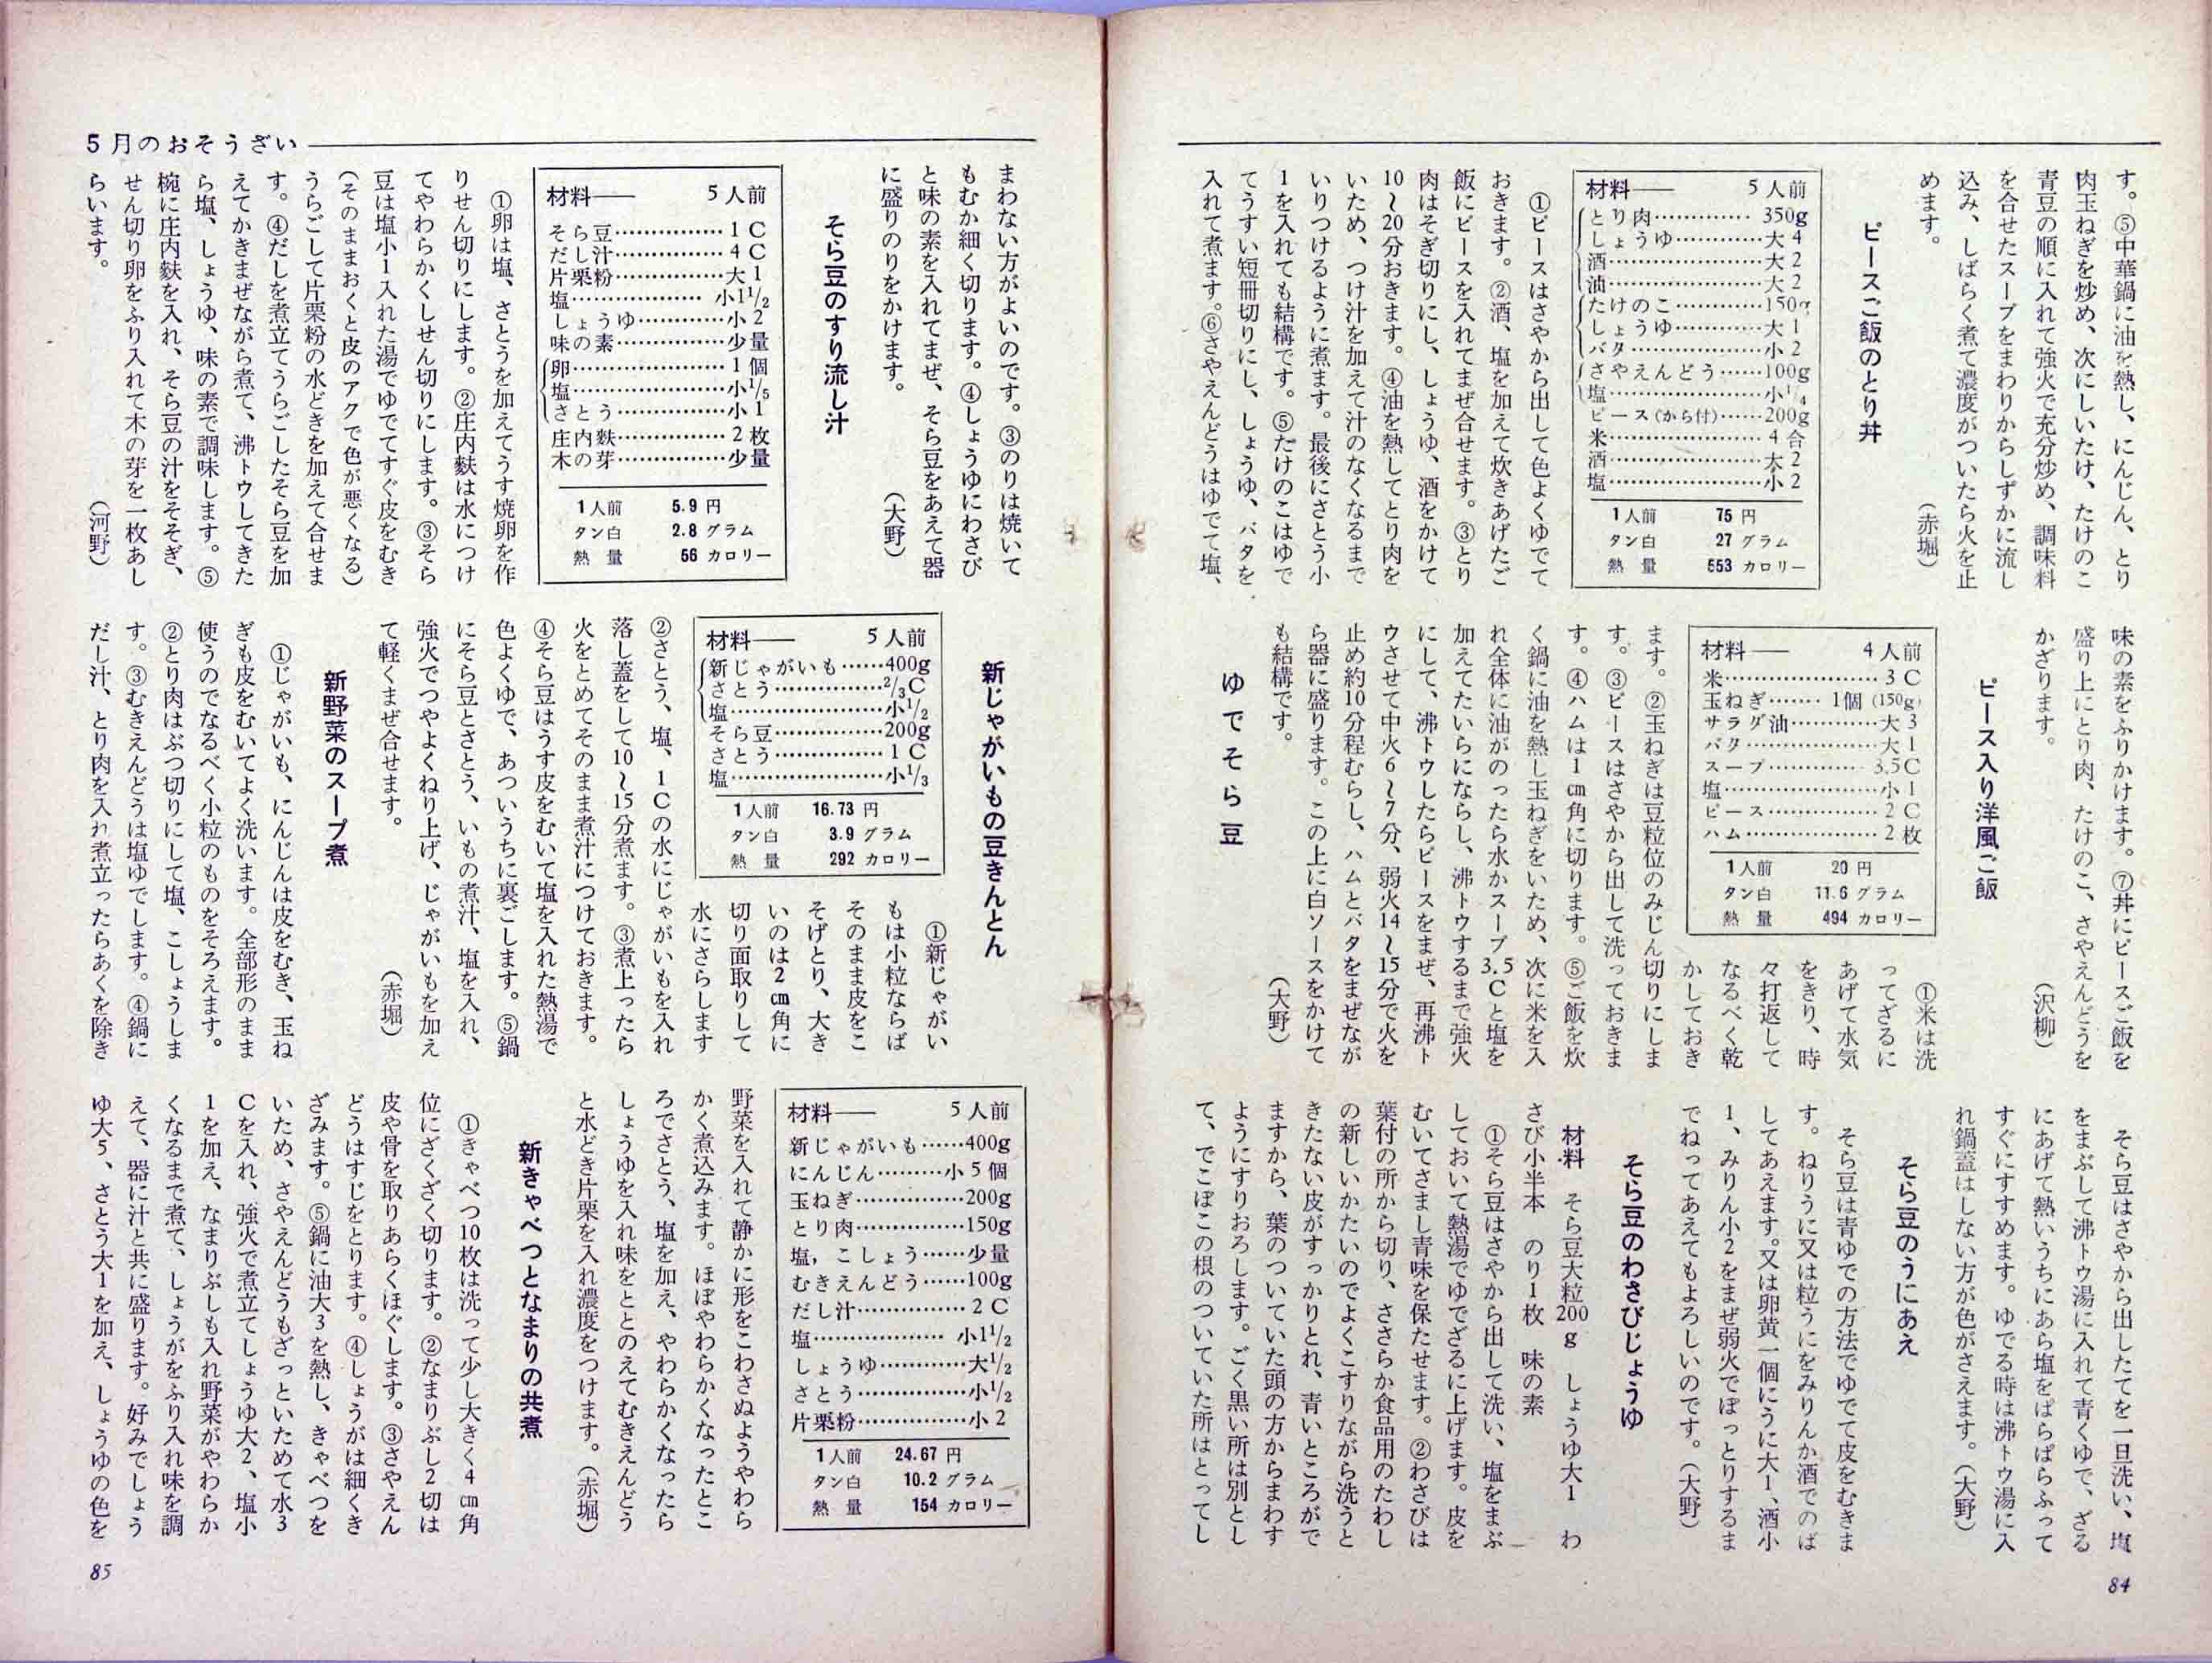 す。⑤中華鍋に油を熱し、にんじん、とり
肉玉ねぎを炒め、次にしいたけ、たけのこ
青豆の順に入れて強火で充分炒め、調味料
を合せたスープをまわりからしずかに流し
込み、しばらく煮て濃度がついたら火を止
めます。
（赤堀）
ピースご飯のとり丼
材料―― 5人前
とり肉…………350g
しょうゆ…………大4
酒…………大2
油…………大2
たけのこ…………150g
しょうゆ…………大1
バタ…………小2
さやえんどう……100g
塩…………小1/4
ピース(から付)……200g
米…………4合
酒…………大2
塩…………小2
1人前 75円
タン白 27グラム
熱量 553カロリー
①ピースはさやから出して色よくゆでて
おきます。②酒、塩を加えて炊きあげたご
飯にピースを入れてまぜ合せます。③とり
肉はそぎ切りにし、しょうゆ、酒をかけて
10～20分おきます。④油を熱してとり肉を
いため、つけ汁を加えて汁のなくなるまで
いりつけるように煮ます。最後にさとう小
1を入れても結構です。⑤たけのこはゆで
てうすい短冊切りにし、しょうゆ、バタを
入れて煮ます。⑥さやえんどうはゆでて塩、
味の素をふりかけます。⑦丼にピースご飯を
盛り上にとり肉、たけのこ、さやえんどうを
かざります。
（沢柳）
ピース入り洋風ご飯
材料―― 4人前
米…………3C
玉ねぎ……1個(150g)
サラダ油…………大3
バタ…………大1
スープ…………3.5C
塩…………小1
ピース…………2C
ハム…………2枚
1人前 20円
タン白 11.6グラム
熱量 494カロリー
①米は洗
ってざるに
あげて水気
をきり、時
々打返して
なるべく乾
かしておき
ます。②玉ねぎは豆粒位のみじん切りにしま
す。③ピースはさやから出して洗っておきま
す。④ハムは1cm角に切ります。⑤ご飯を炊
く鍋に油を熱し玉ねぎをいため、次に米を入
れ全体に油がのったら水かスープ3.5Cと塩を
加えてたいらにならし、沸トウするまで強火
にして、沸トウしたらピースをまぜ、再沸ト
ウさせて中火6～7分、弱火14～15分で火を
止め約10分程むらし、ハムとバタをまぜなが
ら器に盛ります。この上に白ソースをかけて
も結構です。
（大野）
ゆでそら豆
そら豆はさやから出したてを一旦洗い、塩
をまぶして沸トウ湯に入れて青くゆで、ざる
にあげて熱いうちにあら塩をぱらぱらふって
すぐにすすめます。ゆでる時は沸トウ湯に入
れ鍋蓋はしない方が色がさえます。（大野）
そら豆のうにあえ
そら豆は青ゆでの方法でゆでて皮をむきま
す。ねりうに又は粒うにをみりんか酒でのば
してあえます。又は卵黄一個にうに大1、酒小
1、みりん小2をまぜ弱火でぽっとりするま
でねってあえてもよろしいのです。（大野）
そら豆のわさびじょうゆ
材料 そら豆大粒200g しょうゆ大1 わ
さび小半本 のり1枚 味の素
①そら豆はさやから出して洗い、塩をまぶ
しておいて熱湯でゆでざるに上げます。皮を
むいてさまし青味を保たせます。②わさびは
葉付の所から切り、ささらか食品用のたわし
の新しいかたいのでよくこすりながら洗うと
きたない皮がすっかりとれ、青いところがで
ますから、葉のついていた頭の方からまわす
ようにすりおろします。ごく黒い所は別とし
て、でこぼこの根のついていた所はとってし
84
5月のおそうざい
まわない方がよいのです。③のりは焼いて
もむか細く切ります。④しょうゆにわさび
と味の素を入れてまぜ、そら豆をあえて器
に盛りのりをかけます。
（大野）
そら豆のすり流し汁
材料―― 5人前
そら豆…………1C
だし汁…………4C
片栗粉…………大1
塩…………小1 1/2
しょうゆ…………小2
味の素…………少量
卵…………1個
塩…………小1/5
さとう…………小1
庄内麩…………2枚
木の芽…………少量
1人前 5.9円
タン白 2.8グラム
熱量 56カロリー
①卵は塩、さとうを加えてうす焼卵を作
りせん切りにします。②庄内麩は水につけ
てやわらかくしせん切りにします。③そら
豆は塩小1入れた湯でゆでてすぐ皮をむき
（そのままおくと皮のアクで色が悪くなる）
うらごして片栗粉の水どきを加えて合せま
す。④だしを煮立てうらごしたそら豆を加
えてかきまぜながら煮て、沸トウしてきた
ら塩、しょうゆ、味の素で調味します。⑤
椀に庄内麩を入れ、そら豆の汁をそそぎ、
せん切り卵をふり入れて木の芽を一枚あし
らいます。
（河野）
新じゃがいもの豆きんとん
材料―― 5人前
新じゃがいも……400g
さとう…………2/3C
塩…………小1/2
そら豆…………200g
さとう…………1C
塩…………小1/3
1人前 16.73円
タン白 3.9グラム
熱量 292カロリー
①新じゃがい
もは小粒ならば
そのまま皮をこ
そげとり、大き
いのは2cm角に
切り面取りして
水にさらします
②さとう、塩、1Cの水にじゃがいもを入れ
落し蓋をして10～15分煮ます。③煮上ったら
火をとめてそのまま煮汁につけておきます。
④そら豆はうす皮をむいて塩を入れた熱湯で
色よくゆで、あついうちに裏ごします。⑤鍋
にそら豆とさとう、いもの煮汁、塩を入れ、
強火でつやよくねり上げ、じゃがいもを加え
て軽くまぜ合せます。
（赤堀）
新野菜のスープ煮
①じゃがいも、にんじんは皮をむき、玉ね
ぎも皮をむいてよく洗います。全部形のまま
使うのでなるべく小粒のものをそろえます。
②とり肉はぶつ切りにして塩、こしょうしま
す。③むきえんどうは塩ゆでします。④鍋に
だし汁、とり肉を入れ煮立ったらあくを除き
材料―― 5人前
新じゃがいも……400g
にんじん………小5個
玉ねぎ…………200g
とり肉…………150g
塩，こしょう……少量
むきえんどう……100g
だし汁…………2C
塩…………小1 1/2
しょうゆ…………大1/2
さとう…………小1/2
片栗粉…………小2
1人前 24.67円
タン白 10.2グラム
熱量 154カロリー
野菜を入れて静かに形をこわさぬようやわら
かく煮込みます。ほぼやわらかくなったとこ
ろでさとう、塩を加え、やわらかくなったら
しょうゆを入れ味をととのえてむきえんどう
と水どき片栗を入れ濃度をつけます。（赤堀）
新きゃべつとなまりの共煮
①きゃべつ10枚は洗って少し大きく4cm角
位にざくざく切ります。②なまりぶし2切は
皮や骨を取りあらくほぐします。③さやえん
どうはすじをとります。④しょうがは細くき
ざみます。⑤鍋に油大3を熱し、きゃべつを
いため、さやえんどうもざっといためて水3
Cを入れ、強火で煮立てしょうゆ大2、塩小
1を加え、なまりぶしも入れ野菜がやわらか
くなるまで煮て、しょうがをふり入れ味を調
えて、器に汁と共に盛ります。好みでしょう
ゆ大5、さとう大1を加え、しょうゆの色を
85